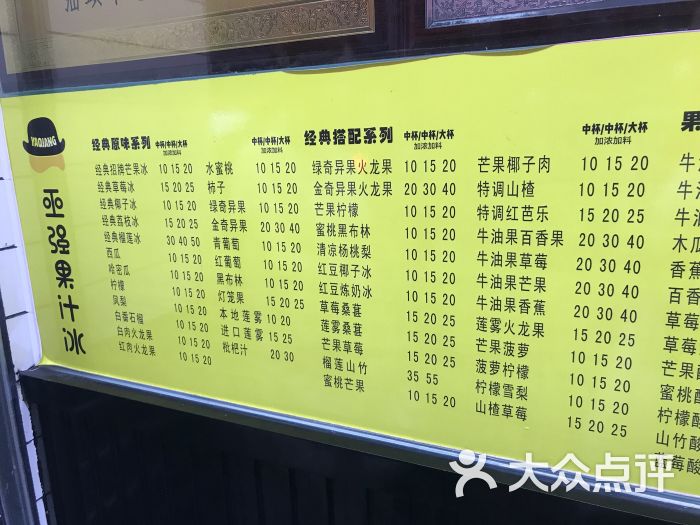 YAQIANG
亚强果汁冰
经典原味系列 中杯/中杯/大杯
加浓加料
经典招牌芒果冰 10 15 20
经典草莓冰 15 20 25
经典椰子冰 10 15 20
经典荔枝冰 15 20 25
经典榴莲冰 30 40 50
西瓜 10 15 20
哈密瓜 10 15 20
柠檬 10 15 20
凤梨 10 15 20
白番石榴 10 15 20
白肉火龙果 10 15 20
红肉火龙果 10 15 20
中杯/中杯/大杯
加浓加料
水蜜桃 10 15 20
柿子 10 15 20
绿奇异果 10 15 20
金奇异果 20 30 40
青葡萄 10 15 20
红葡萄 10 15 20
黑布林 10 15 20
灯笼果 15 20 25
本地莲雾 10 20
进口莲雾 15 20 25
枇杷汁 20 30
经典搭配系列 中杯/中杯/大杯
加浓加料
绿奇异果火龙果 10 15 20
金奇异果火龙果 20 30 40
芒果柠檬 10 15 20
蜜桃黑布林 10 15 20
清凉杨桃梨 10 15 20
红豆椰子冰 10 15 20
红豆炼奶冰 10 15 20
草莓桑葚 15 20 25
莲雾桑葚 15 20 25
芒果草莓 15 20 25
榴莲山竹 35 55
蜜桃芒果 10 15 20
中杯/中杯/大杯
加浓加料
芒果椰子肉 10 15 20
特调山楂 10 15 20
特调红芭乐 15 20 25
牛油果百香果 20 30 40
牛油果草莓 20 30 40
牛油果芒果 20 30 40
牛油果香蕉 20 30 40
莲雾火龙果 15 20 25
芒果菠萝 10 15 20
菠萝柠檬 10 15 20
柠檬雪梨 10 15 20
山楂草莓 15 20 25
果
牛
牛
牛
木瓜
香蕉
百香
草莓
草莓
芒果
蜜桃酸
柠檬酸
山竹酸
蓝莓酸
大众点评